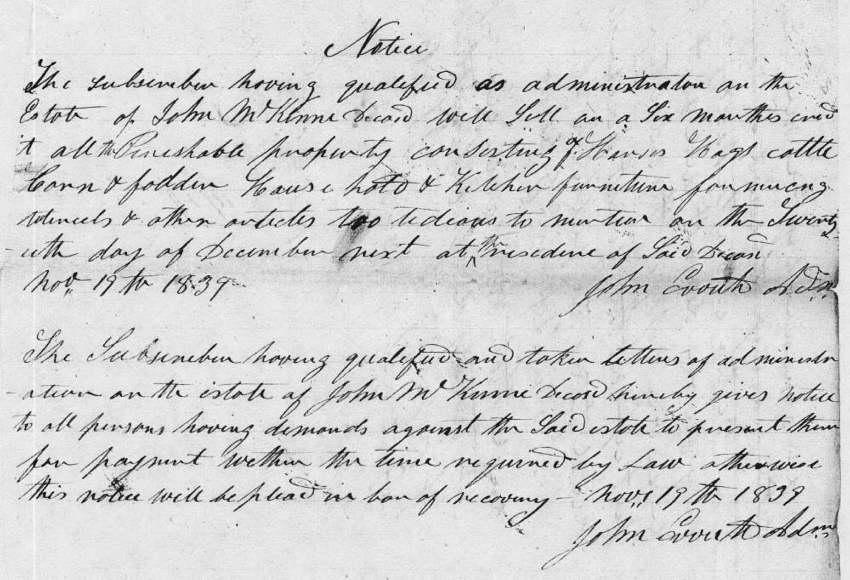 Notice
The subscriber having qualified as administrator on the
Estate of John McKinne Decasd will Sell on a Six months cred
it all the Perishable property consisting of Horses Hogs cattle
Corn & fodder House hold & Kitchen furniture farmucng
utencels & other articles too tedious to mention on the Twenty
-eth day of December next at the residence of Said Decasd
Novr 19th 1839
John Adm
The Subscriber having qualified and taken letters of administr
-ation on the estate of John McKinne Decasd hereby gives notice
to all persons having demands against the Said estate to present them
for payment within the time required by Law otherwise
this notice will be plead in bar of recovery - Novr 19th 1839
John Adm